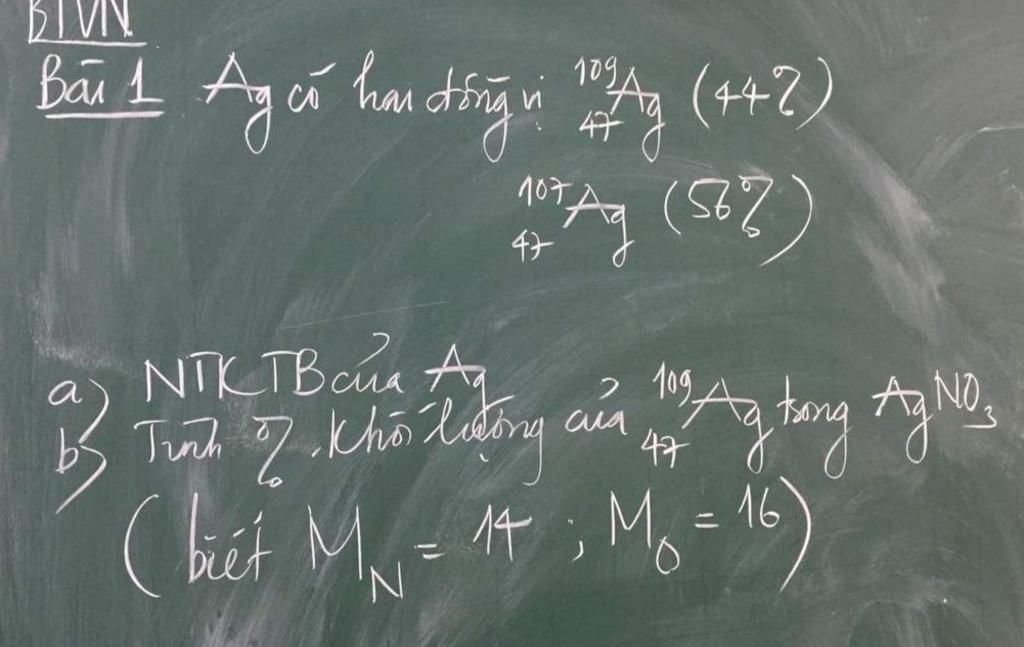 BTVN
Bài 1 Ag có hai đồng vị ¹⁰⁹₄₇Ag (44%)
¹⁰⁷₄₇Ag (56%)
a) NTKTB của Ag
b) Tính % khối lượng của ¹⁰⁹₄₇Ag trong AgNO₃
(biết M_N = 14 ; M_O = 16)